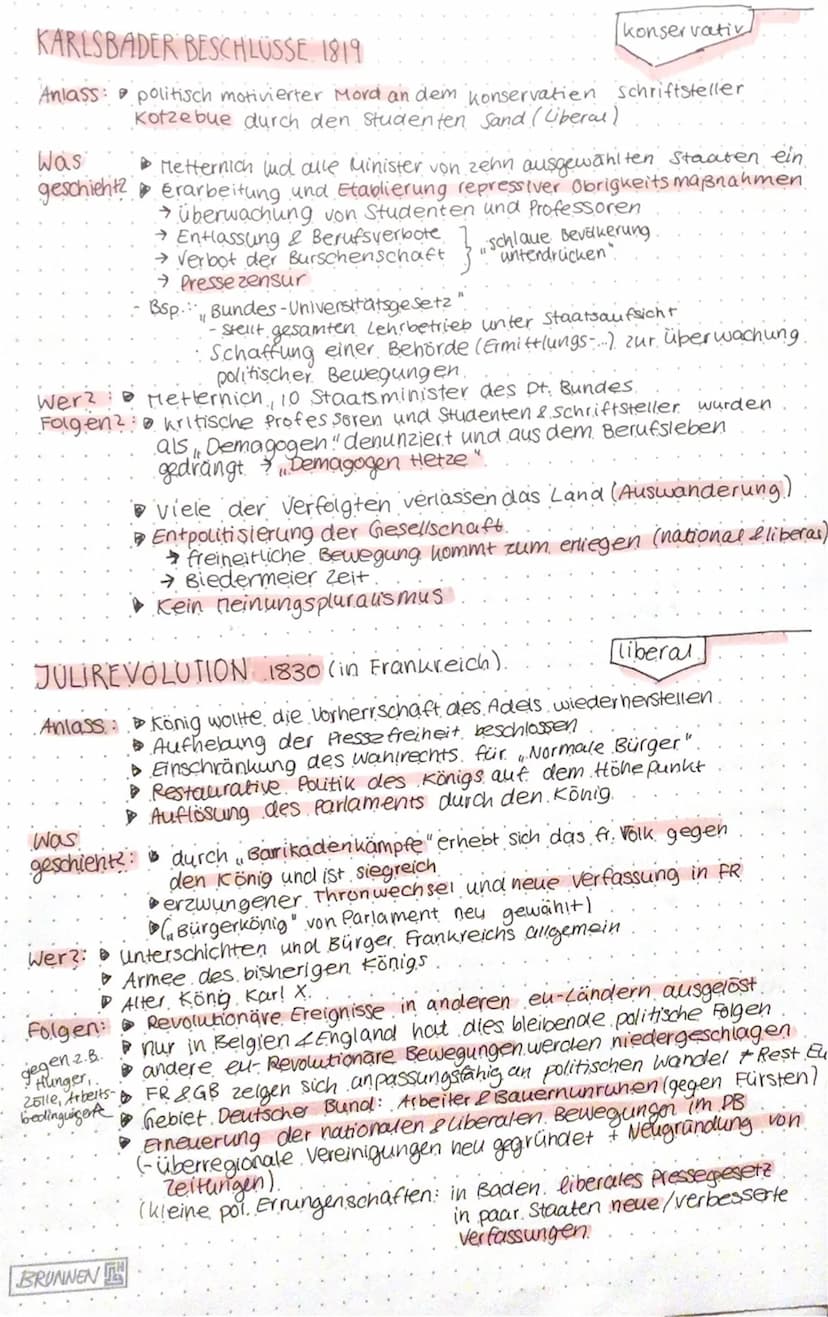 konservativ
KARLSBADER BESCHLÜSSE 1819
Anlass: politisch motivierter Mord an dem konservatien Schriftsteller
Kotzebue durch den Studenten Sand (Liberal)
Was geschieht? Metternich lud alle Minister von zehn ausgewählten Staaten ein
Erarbeitung und Etablierung repressiver Obrigkeitsmaßnahmen
→ Überwachung von Studenten und Professoren
→ Entlassung & Berufsverbote
→ Verbot der Burschenschaft
"schlaue Bevölkerung
unterdrücken"
→ Pressezensur
- Bsp.: „Bundes-Universitätsgesetz"
- stellt gesamten Lehrbetrieb unter Staatsaufsicht
· Schaffung einer Behörde (Ermittlungs-...) zur Überwachung
politischer Bewegungen
Wer?: Metternich, 10 Staatsminister des Dt. Bundes
Folgen?: kritische Professoren und Studenten & Schriftsteller wurden
als „Demagogen" denunziert und aus dem Berufsleben
gedrängt → „Demagogen Hetze"
Viele der Verfolgten verlassen das Land (Auswanderung)
Entpolitisierung der Gesellschaft
→ freiheitliche Bewegung kommt zum erliegen (national & liberal)
→ Biedermeier Zeit
Kein Meinungspluralismus
liberal
JULIREVOLUTION 1830 (in Frankreich)
Anlass: König wollte die Vorherrschaft des Adels wiederherstellen
Aufhebung der Pressefreiheit beschlossen
Einschränkung des Wahlrechts für „Normale Bürger"
Restaurative Politik des Königs auf dem Höhepunkt
Auflösung des Parlaments durch den König
Was geschieht?: durch „Barrikadenkämpfe" erhebt sich das fr. Volk gegen
den König und ist siegreich
erzwungener Thronwechsel und neue Verfassung in FR
(„Bürgerkönig" von Parlament neu gewählt)
Wer?: Unterschichten und Bürger Frankreichs allgemein
Armee des bisherigen Königs
Alter König Karl X.
Folgen: Revolutionäre Ereignisse in anderen eu-Ländern ausgelöst
nur in Belgien & England hat dies bleibende politische Folgen
andere eu-Revolutionäre Bewegungen werden niedergeschlagen
FR & GB zeigen sich anpassungsfähig an politischen Wandel ≠ Rest Eu
Gebiet Deutscher Bund: Arbeiter & Bauernunruhen (gegen Fürsten)
gegen z.B.
Hunger,
Zölle, Arbeits-
bedingungen
Erneuerung der nationalen & liberalen Bewegungen im DB
(- überregionale Vereinigungen neu gegründet + Neugründung von
Zeitungen)
(kleine pol. Errungenschaften: in Baden liberales Pressegesetz
in paar Staaten neue/verbesserte
Verfassungen
BRUNNEN